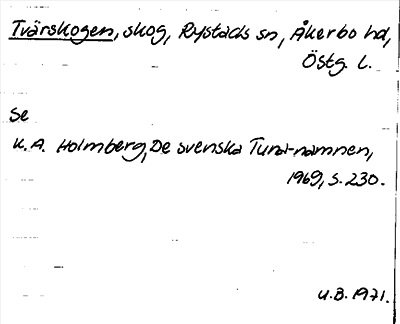 Tvärskogen, skog, Rystads sn, Åkerbo hd,
Östg. L.
Se
K.A. Holmberg, De svenska Tuna-namnen,
1969, s. 230.
U.B. 1971.